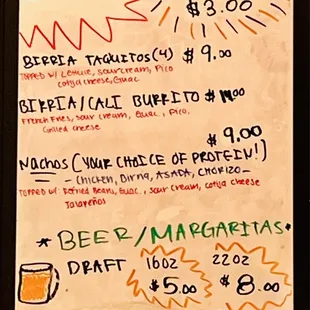 $3.00
BIRRIA TAQUITOS (4) $9.00
TOPPED W/ Lettuce, sour cream, Pico
cotija cheese, Guac
BIRRIA/CALI BURRITO $14.00
French Fries, sour cream, Guac, Pico,
Grilled cheese
$9.00
Nachos (YOUR CHOICE OF PROTEIN!)
- CHICKEN, Birria, ASADA, CHORIZO -
TOPPED W/ Refried Beans, Guac, sour cream, cotija cheese
Jalapeños
* BEER/MARGARITAS *
DRAFT 16oz 22oz
$5.00 $8.00